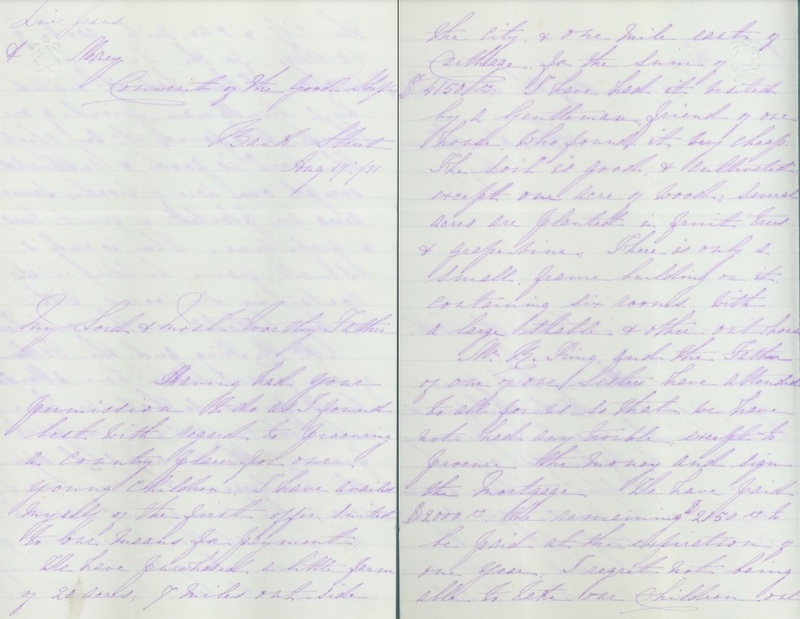 Live Jesus
& Mary
Convent of the Good Shep
Bank Street
Aug 17th/71
My Lord & most worthy Father
Having had your
permission to do as I found
best with regard to procuring
a country place for our
young children, I have availed
myself of the first offer suited
to our means for payment.
We have purchased a little farm
of 20 acres, 7 miles out side
the city & one mile east of
Carthage for the sum of
$4150 00. I have had it visited
by a Gentleman friend of our
house who found it very cheap.
The soil is good, & cultivated
except one acre of wood; several
acres are planted in fruit trees
& grape vine. There is only a
small frame building on it
containing six rooms with
a large stable & other out hous
Mr. King, and the Father
of one of our Sisters have attended
to all for us so that we have
not had any trouble, except to
procure the money and sign
the Mortgage. We have paid
$2000 00 the remaining $2150 00 to
be paid at the expiration of
one year. I regret not being
able to take our Children out